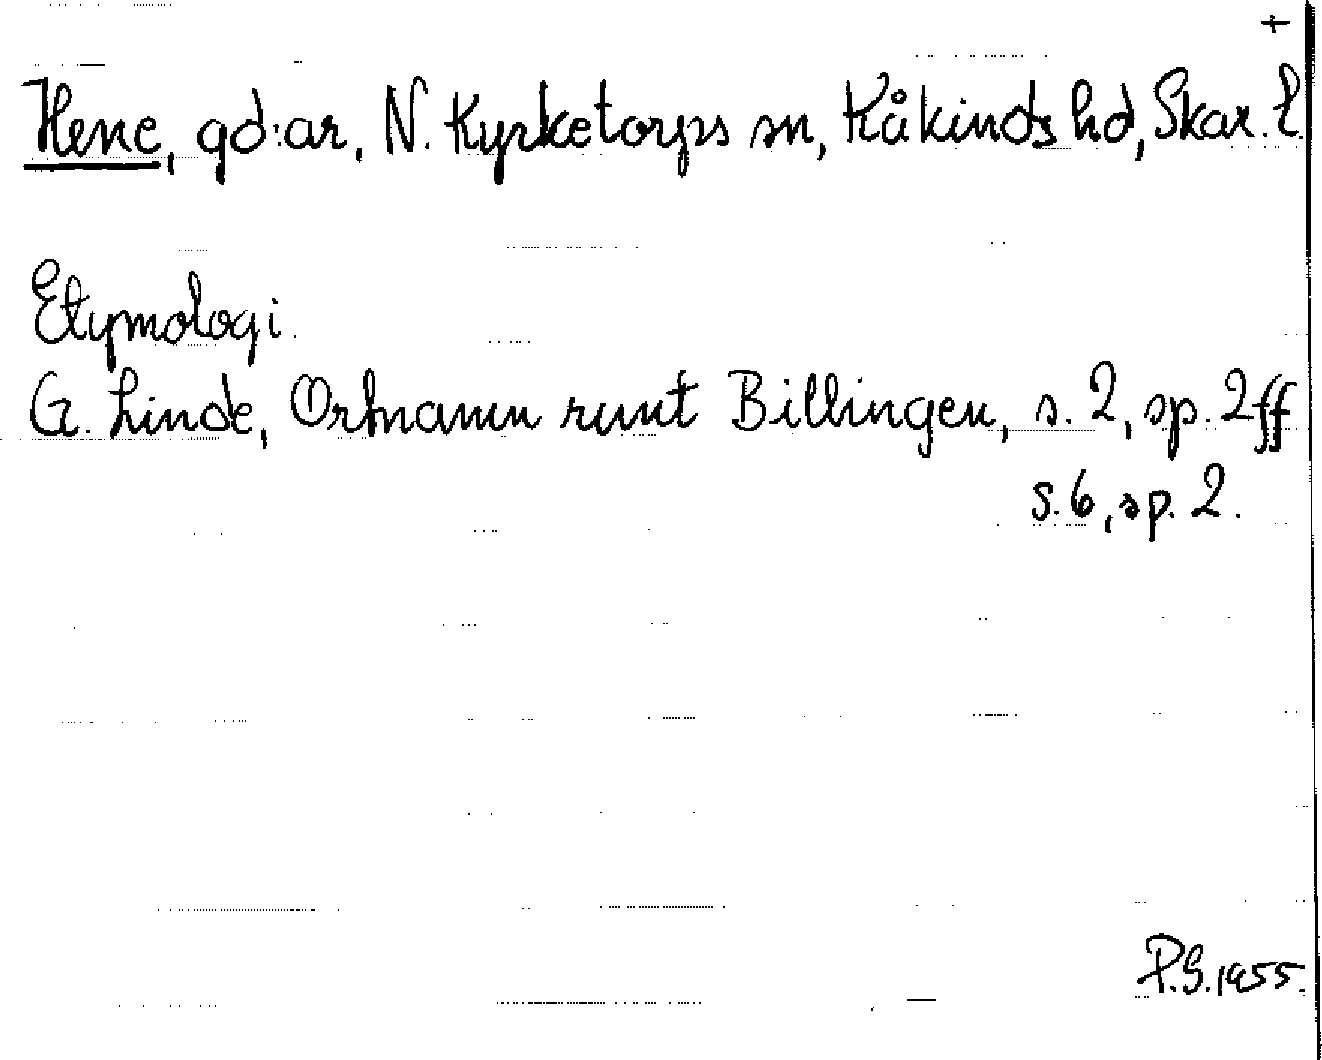 +
Hene, gd:ar, N. Kyrketorps sn, Kåkinds hd, Skar. l.
Etymologi.
G. Linde, Ortnamn runt Billingen, s. 2, sp. 2ff
s. 6, sp. 2.
P.S. 1955.